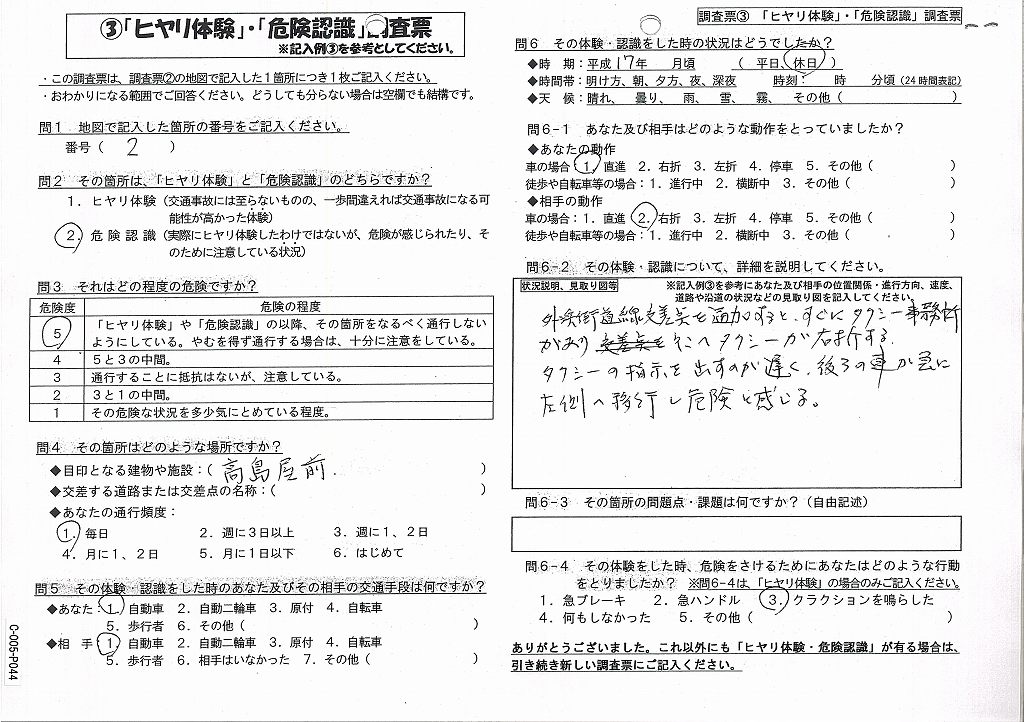 ③「ヒヤリ体験」・「危険認識」調査票
※記入例③を参考としてください。
・この調査票は、調査票②の地図で記入した1箇所につき1枚ご記入ください。
・おわかりになる範囲でご回答ください。どうしても分らない場合は空欄でも結構です。
問1 地図で記入した箇所の番号をご記入ください。
番号(2)
問2 その箇所は、「ヒヤリ体験」と「危険認識」のどちらですか?
1.ヒヤリ体験(交通事故には至らないものの、一歩間違えれば交通事故になる可
能性が高かった体験)
2.危険認識(実際にヒヤリ体験したわけではないが、危険が感じられたり、そ
のために注意している状況)
問3 それはどの程度の危険ですか?
危険度 危険の程度
5 「ヒヤリ体験」や「危険認識」の以降、その箇所をなるべく通行しない
ようにしている。やむを得ず通行する場合は、十分に注意をしている。
4 5と3の中間。
3 通行することに抵抗はないが、注意している。
2 3と1の中間。
1 その危険な状況を多少気にとめている程度。
問4 その箇所はどのような場所ですか?
◆目印となる建物や施設:(高島屋前.)
◆交差する道路または交差点の名称:( )
◆あなたの通行頻度:
1.毎日 2.週に3日以上 3.週に1、2日
4.月に1、2日 5.月に1日以下 6.はじめて
問5 その体験・認識をした時のあなた及びその相手の交通手段は何ですか?
◆あなた:1.自動車 2.自動二輪車 3.原付 4.自転車
5.歩行者 6.その他( )
◆相 手:1.自動車 2.自動二輪車 3.原付 4.自転車
5.歩行者 6.相手はいなかった 7.その他( )
C-005-P044
調査票③ 「ヒヤリ体験」・「危険認識」調査票
問6 その体験・認識をした時の状況はどうでしたか?
◆時 期:平成17年 月頃 (平日、休日)
◆時間帯:明け方、朝、夕方、夜、深夜 時刻: 時 分頃(24時間表記)
◆天 候:晴れ、 曇り、 雨、 雪、 霧、 その他( )
問6-1 あなた及び相手はどのような動作をとっていましたか?
◆あなたの動作
車の場合:1.直進 2.右折 3.左折 4.停車 5.その他( )
徒歩や自転車等の場合:1.進行中 2.横断中 3.その他( )
◆相手の動作
車の場合:1.直進 2.右折 3.左折 4.停車 5.その他( )
徒歩や自転車等の場合:1.進行中 2.横断中 3.その他( )
問6-2 その体験・認識について、詳細を説明してください。
状況説明、見取り図等 ※記入例③を参考にあなた及び相手の位置関係・進行方向、速度、
道路や沿道の状況などの見取り図を記入してください。
街道線交差点を通加すると、すぐにタクシー事務所
があり 交差点を そこへタクシーが右折する.
タクシーの指示を出すのが遅く、後ろの車が急に
左側へ移行し危険と感じる。
問6-3 その箇所の問題点・課題は何ですか?(自由記述)
問6-4 その体験をした時、危険をさけるためにあなたはどのような行動
をとりましたか? ※問6-4は、「ヒヤリ体験」の場合のみご記入ください。
1.急ブレーキ 2.急ハンドル 3.クラクションを鳴らした
4.何もしなかった 5.その他( )
ありがとうございました。これ以外にも「ヒヤリ体験・危険認識」が有る場合は、
引き続き新しい調査票にご記入ください。